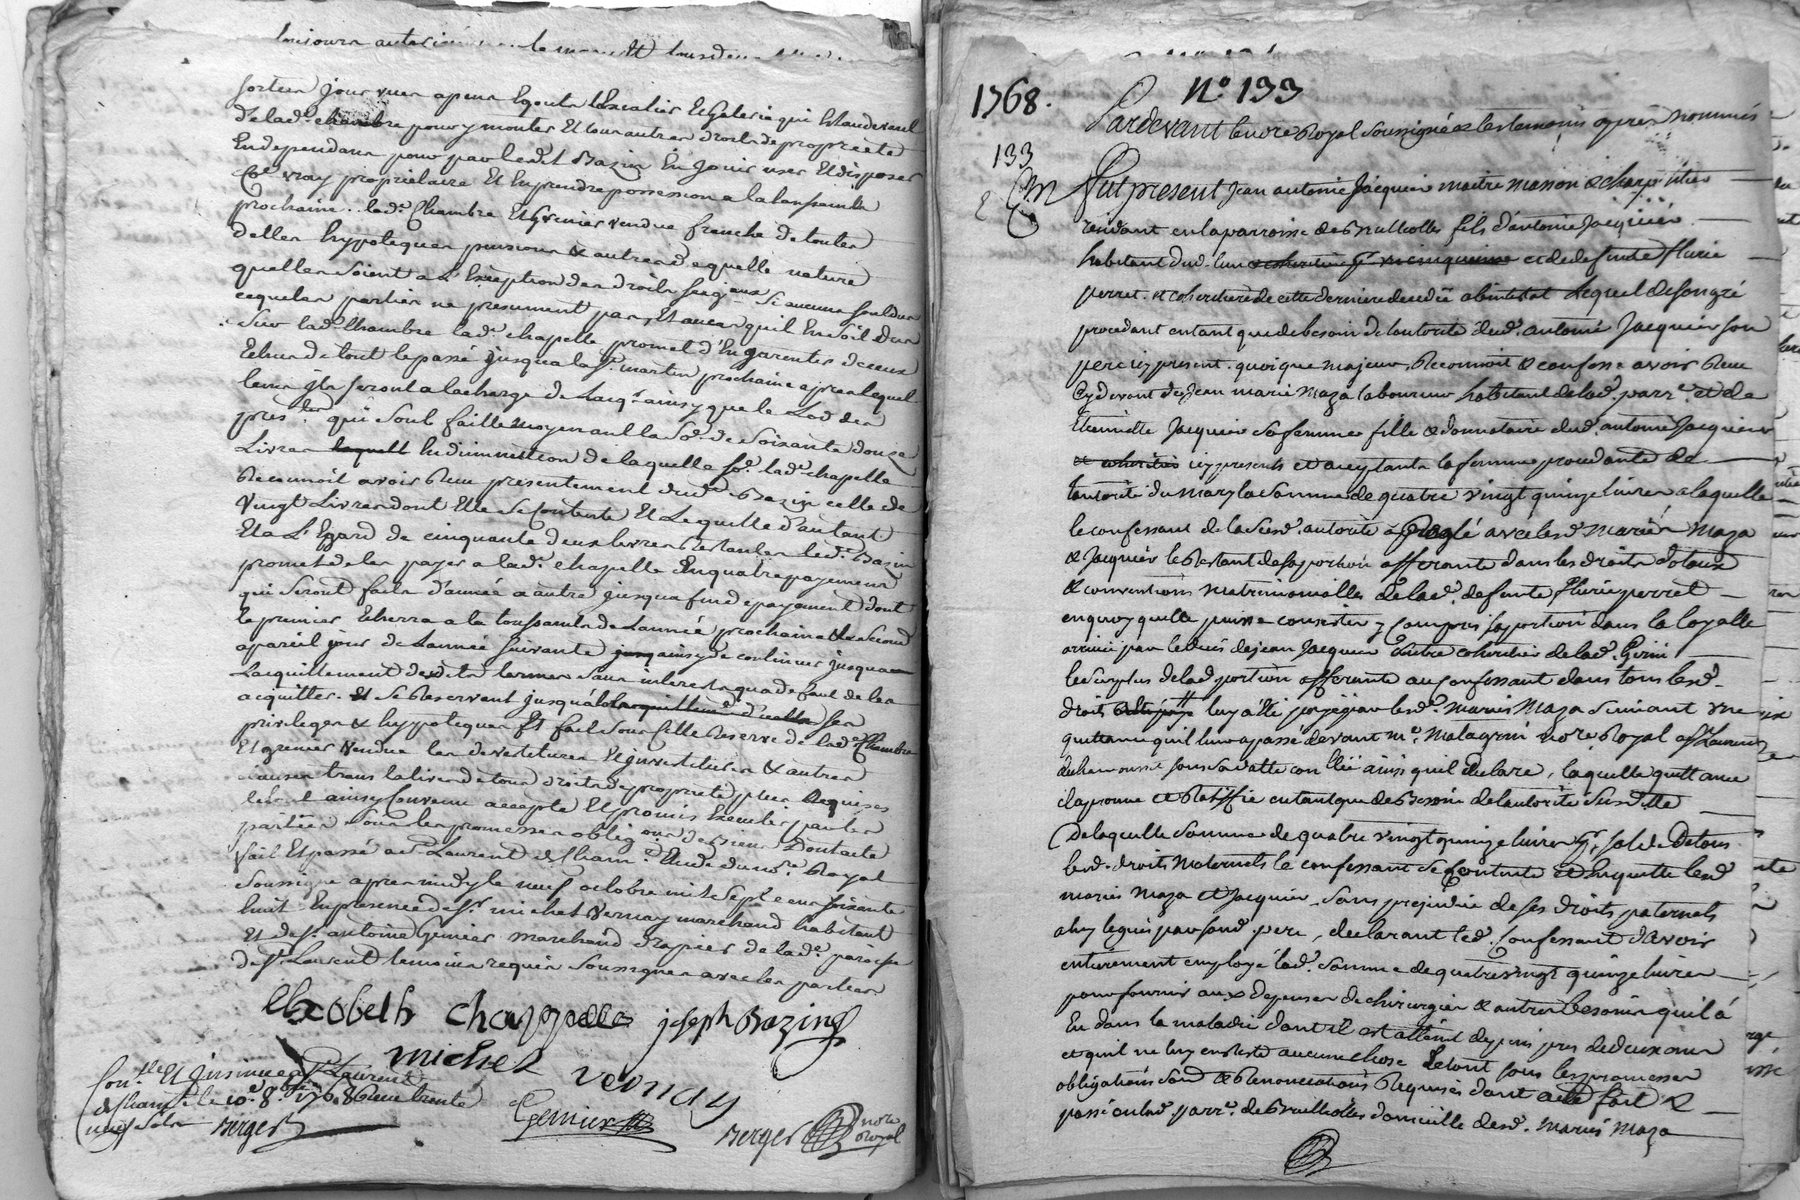 sorties jour vues apeur Egouts Escalier Et galerie qui Est audevant
delad.e chambre pour y monter Et tous autres droits de propriete
En dependans pour par ledit Bazin En jouir user Et disposer
Co.e vray proprietaire Et En prendre possession a la toussaints
prochaine .. lad.e Chambre Et Grenier vendue franche de toutes
dettes hypoteques pensions & autres d'equelle nature
quelles soient a L'Exception des droits seig.aux si aucuns sont dus
cequeles parties ne presument pas, Et au cas qu'il En soit dus
sur lad.e Chambre lad.e chapelle promet d'En garentir de ceux
Echus de tout le passé jusqua la S.t martin prochaine apres lequel
tems ils seront a la charge de Lacq.r ainsy que le Lod des
pres.tes qui sont faittes moyenant la So.e de soixante douze
Livres En diminution de laquelle So.e lad.e chapelle
Reconnoit avoir Reçu presentement dud.t Bazin celle de
vingt Livres dont Elle se Contente Et Le quitte d'autant
Et a L'Egard de cinquante deux livres Restantes led.t Bazin
promet de les payer a lad.e chapelle En quatre payemens
qui seront faits d'année a autre jusqua fin de payement dont
le premier Echerra a la toussaints de Lannée prochaine Le second
a pareil jour de Lannée suivante ainsy de continuer jusqua
Lacquittement desdits termes sans interets qua defaut de les
acquitter. se Reservent jusqua ses
privileges & hypoteques Et fait sous cette Reserve de lad.e Chambre
Et grenier vendue les devestitures Et jnvestitures & autres
clauses translatives de tous droits de propriete plus Requises
le tout ainsy Convenu accepté Et promis Executer par les
parties sous les promesses oblig.ons de biens Dont acte
fait Et passé a S.t Laurent de Cham.t Etude du no.re Royal
soussigné apres midy le neuf octobre mil sept cens soixante
huit En presence de S.r michel Vernay marchand habitant
Et de S.r antoine Genier Marchand drapier de lad.e paroisse
de S.t Laurent temoins requis soussignes avec les parties.
elizabeth Chappelle joseph Bazin
michel vernay
Con.llé Et jnsinué a S.t Laurent
de Cham.t le 10.e 8.bre 1768 Reçu trente
neuf sols Berger
Genier
Berger no.re Royal
1768. N.o 133
Pardevant le no.re Royal soussigné & les temoins apres nommés
133
Fut present Jean antoine Jacquier maitre masson & charpentier
residant en la parroisse de Brullioles fils d'antoine Jacquier
habitant dud. lieu et de defunte fleurie
perret. et coheritiere de cette derniere decedée abintestat Lequel de son gré
procedant en tant que de besoin de l'autorité dud. antoine Jacquier son
pere icy present. quoique majeur, Reconnoit & confesse avoir Reçu
cy devant de Jean marie Maza laboureur habitant de lad. parr.e et de
Etiennette Jacquier sa femme fille & donnataire dud. antoine Jacquier
icy presents et acceptants la femme procedante de
l'autorité du mary la somme de quatre vingt quinze livres a laquelle
le confessant de la Susd. autorité a Reglé avec lesd. mariés Maza
& Jacquier le Restant de sa portion afferante dans les droits dotaux
& conventions matrimoniales de lad. defunte fleurie perret
en quoy quelle puisse consister y compris sa portion dans la loyalle
arrivée par le deces de jean Jacquier autre coheritier de lad.
le surplus de lad. portion afferante au confessant dans tous lesd.
droits luy a été payé par lesd. mariés Maza suivant une
quittance qu'il leur a passé devant m.e Malagrin no.re Royal a S.t Laurent
de chamousset sous sa datte con.llée ainsi quil declare, laquelle quittance
il aprouve et Ratiffie en tant que de Besoin de l'autorité susditte
De laquelle somme de quatre vingt quinze livres p.r solde De tous
lesd. droits maternels le confessant se Contente et En quitte lesd.
mariés Maza et Jacquier, sans prejudice de ses droits paternels
a luy legués par sond. pere, declarant led. Confessant d'avoir
entierement employé lad. somme de quatrevingt quinze livres
pour fournir aux depenses de chirurgien & autres besoins quil a
Eu dans la maladie dont il est atteint depuis pres de deux ans
et quil ne luy en Reste aucune chose Le tout sous les promesses
obligations Soum.ons & Renonciations Requises dont acte fait &
passé en lad. parr.e de Brullioles domicille desd. mariés Maza